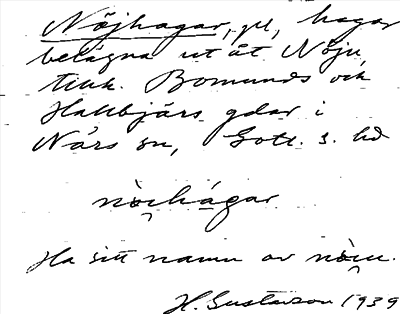 Nöjhagar, pl, hagar
belägna ut åt Nöju
tillh. Bomunds och
Hallbjärs gdar i
När sn, Gotl. s. hd
nò̯ɩhágar
Ha sitt namn av nò̯ɩu.
H. Gustavson 1939